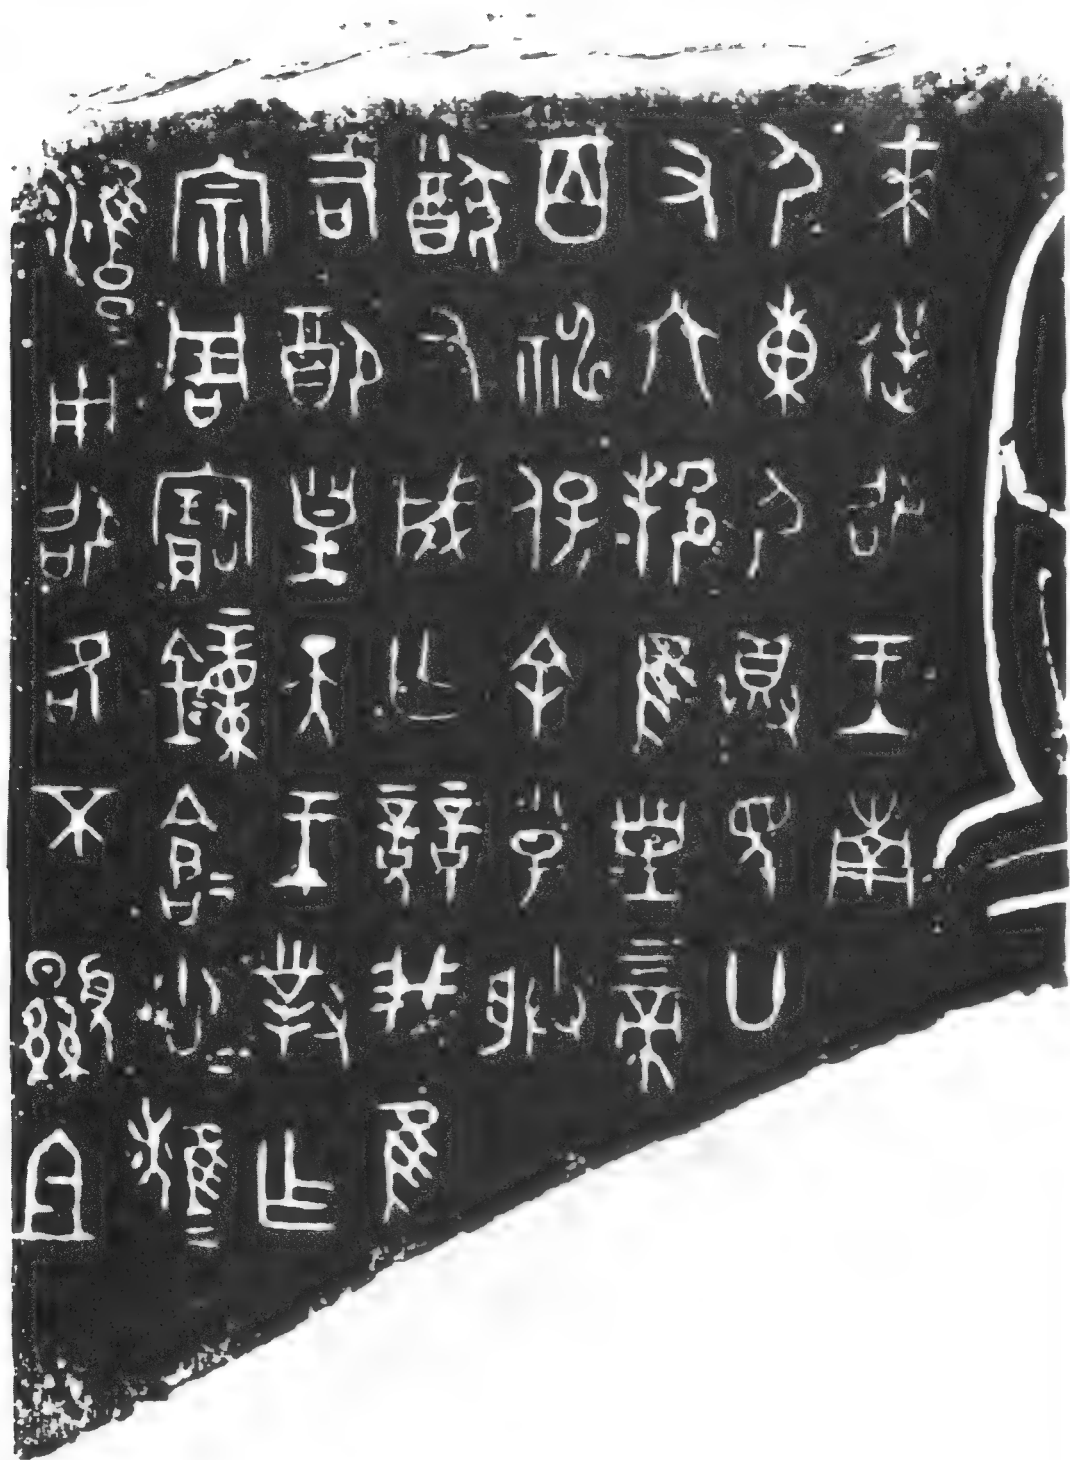 來逆卲王南
尸東尸具見廿
又六邦隹皇上帝
百神保余小子朕
猷又成亡競我隹
司配皇天王對乍
宗周寶鐘倉=悤=
雝=用卲各不顯且